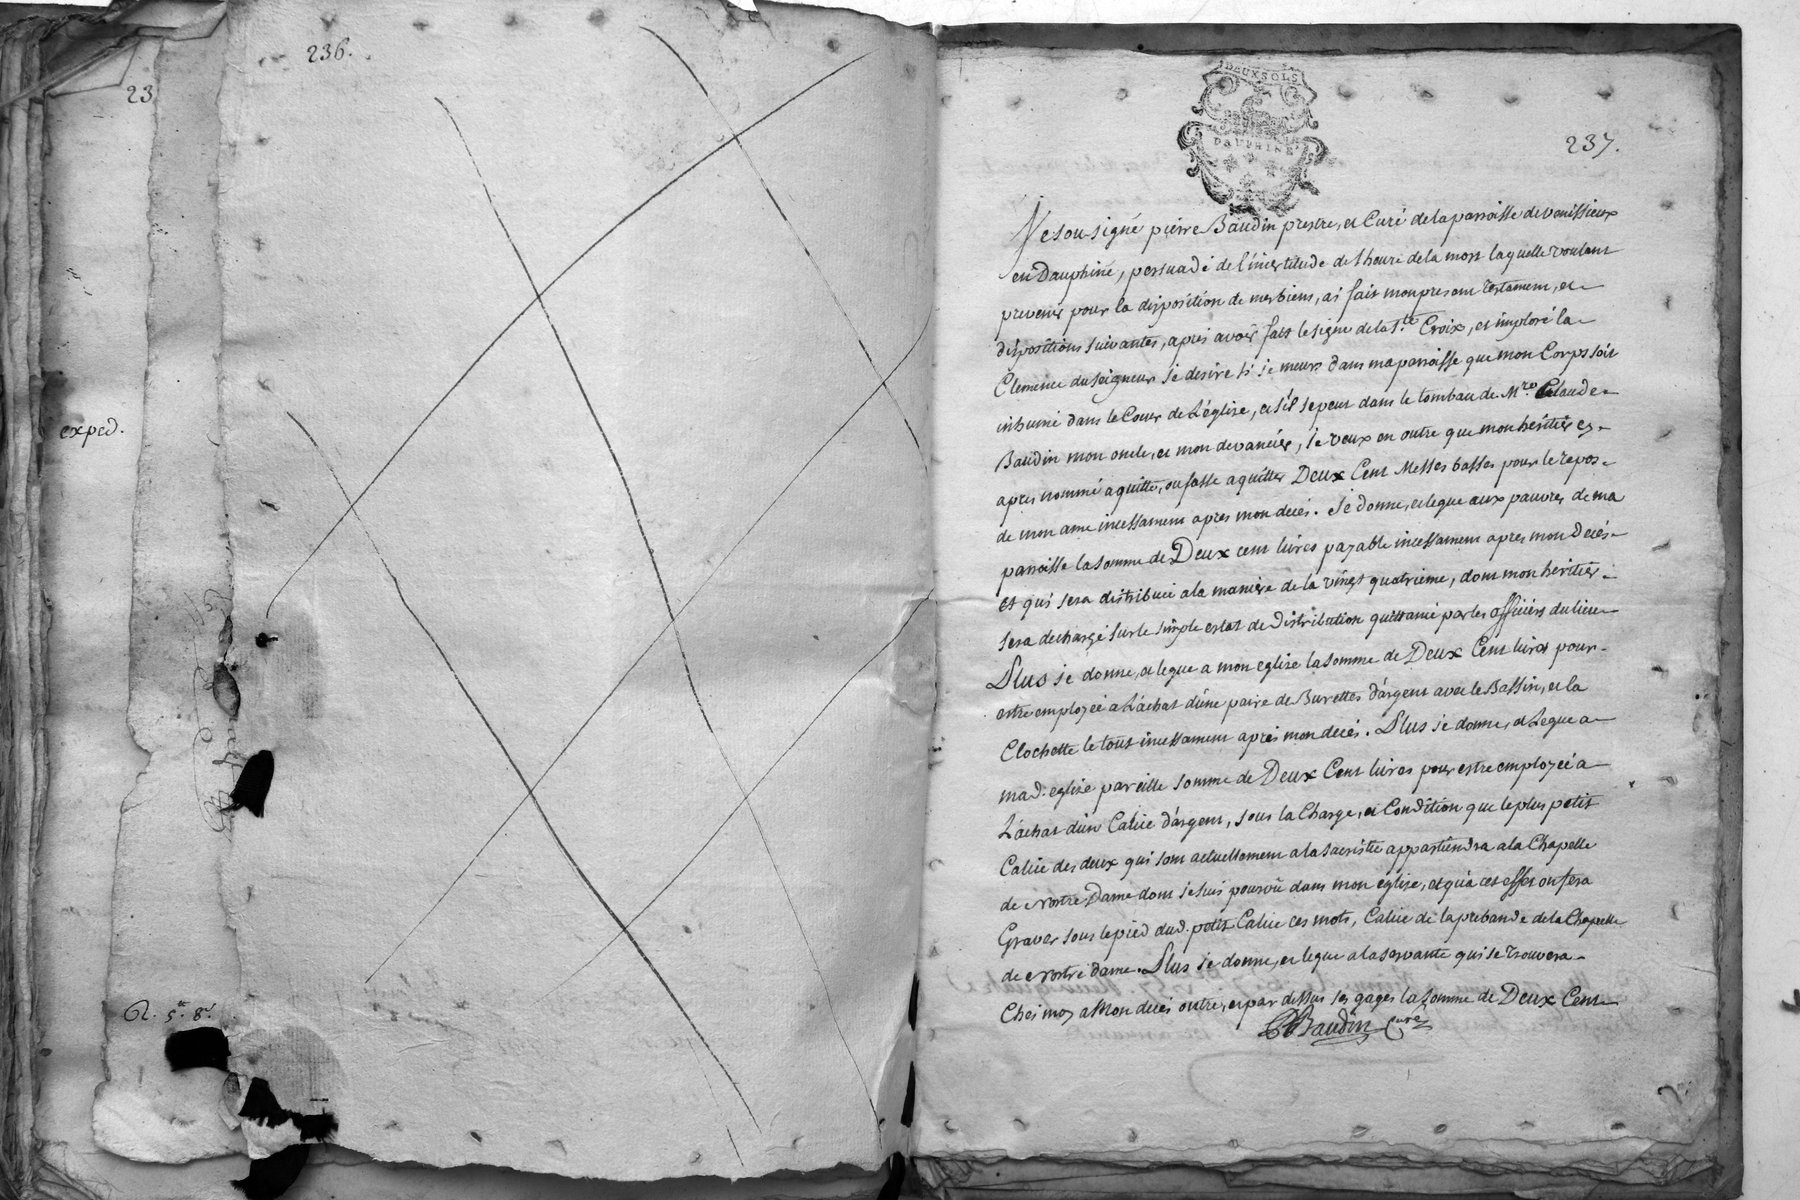 236.
23
exped.
R. 5.s 8.d
DEUX SOLS
DAUPHINE
237.
Je sousigné pierre Baudin prestre, et Curé de la paroisse de vanissieux
en Dauphiné, persuadé de l'incertitude de l'heure de la mort laquelle voulant
prevenir pour la disposition de mes biens, ai fait mon present testament, et
dispositions suivantes, apres avoir fait le signe de la S.te Croix, et imploré la
Clemence du seigneur je desire si je meurs dans ma paroisse que mon Corps soit
inhumé dans le Cœur de L'église, et s'il se peut dans le tombau de M.re Claude
Baudin mon oncle, et mon devancier, je veux en outre que mon héritier cy
apres nommé aquitte, ou fasse aquitter Deux Cent Messes basses pour le repos
de mon ame incessament apres mon decés. Je donne, et legue aux pauvres de ma
paroisse la somme de Deux cent livres payable incessament apres mon decés
et qui sera distribuée a la maniere de la vingt quatrieme, dont mon heritier
sera dechargé sur le simple estat de distribution quittancé par les officiers du lieu
Plus je donne, et legue a mon eglise la somme de Deux Cent livres pour
estre employée a L'achat d'une paire de Burettes d'argent avec le Bassin, et la
Clochette le tout incessament apres mon decés. Plus je donne, et Legue a
mad. eglise pareille somme de Deux Cent livres pour estre employée a
L'achat d'un Calice d'argent, sous la Charge, et Condition que le plus petit
Calice des deux qui sont actuellement a la sacristie appartiendra a la Chapelle
de Nostre Dame dont je suis pourvû dans mon eglise, et qu'a cet effet on fera
Graver sous le pied dud. petit Calice ces mots, Calice de la prebande de la Chapelle
de Nostre dame. Plus je donne, et legue a la servante qui se trouvera
Chés moy a Mon decés outre, et par dessus ses gages la somme de Deux Cent
PBaudin Curé